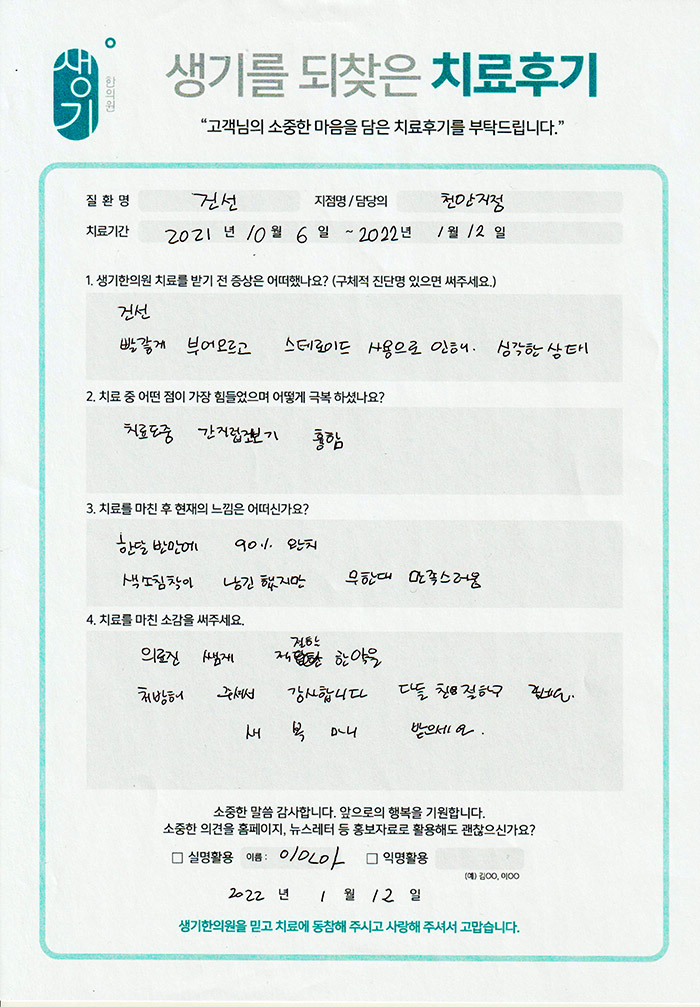 생기
한의원
생기를 되찾은 치료후기
“고객님의 소중한 마음을 담은 치료후기를 부탁드립니다.”
질 환 명 건선 지점명 / 담당의 천안지점
치료기간 2021 년 10 월 6 일 ~ 2022 년 1 월 12 일
1. 생기한의원 치료를 받기 전 증상은 어떠했나요? (구체적 진단명 있으면 써주세요.)
건선
빨갛게 부어오르고 스테로이드 사용으로 인해. 심각한 상태
2. 치료 중 어떤 점이 가장 힘들었으며 어떻게 극복 하셨나요?
치료도중
3. 치료를 마친 후 현재의 느낌은 어떠신가요?
한달 반만에 90% 완치
색소침착이 남긴 했지만 무한대 만족스러움
4. 치료를 마친 소감을 써주세요.
의료진 쌤께 적절한 한약을
처방해 주셔서 감사합니다 다들
새 복 마니 받으세요.
소중한 말씀 감사합니다. 앞으로의 행복을 기원합니다.
소중한 의견을 홈페이지, 뉴스레터 등 홍보자료로 활용해도 괜찮으신가요?
□ 실명활용 이름 : □ 익명활용
(예) 김OO, 이OO
2022 년 1 월 12 일
생기한의원을 믿고 치료에 동참해 주시고 사랑해 주셔서 고맙습니다.